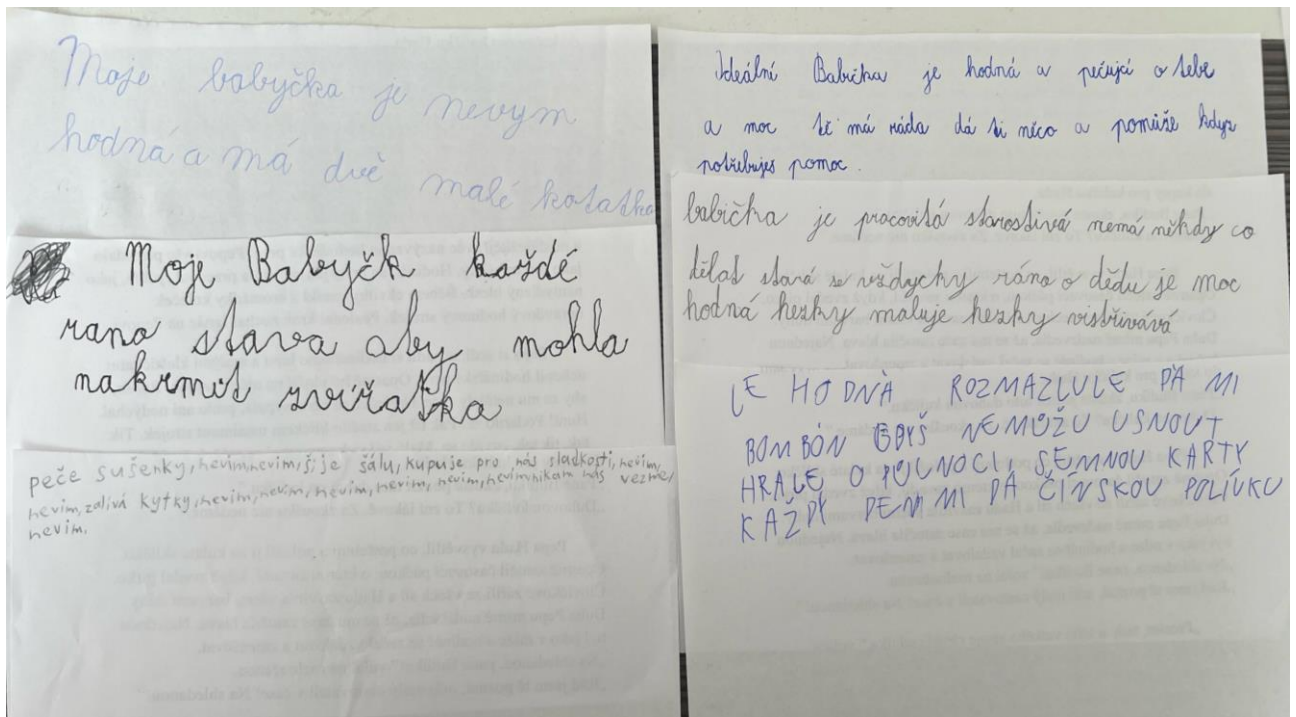 Moje babyčka je nevym
hodná a má dvě malé kotatka
Moje Babyčk každé
rano stava aby mohla
nakrmit zvířatka
peče sušenky, nevim, nevim, šije šálu, kupuje pro nás sladkosti, nevim,
nevim, zalivá kytky, nevim, nevim, nevim, nevim, nevim, nevim, nikam nás vezme,
nevim.
Ideální Babička je hodná a pečující o tebe
a moc tě má ráda dá ti něco a pomůže když
potřebujes pomoc.
babička je pracovitá starostivá nemá někdy co
dělat stará se vždycky ráno o dědu je moc
hodná hezky maluje hezky vistřivává
JE HODNÁ ROZMAZLULE DÁ MI
BONBÓN GDYŠ NEMŮŽU USNOUT
HRAJE O PŮLNOCI, SEMNOU KARTY
KAŽDÝ DEN MI DÁ ČÍNSKOU POLÍVKU